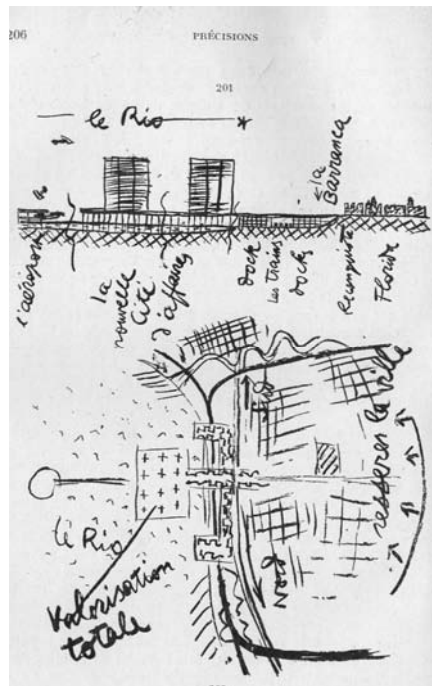 206
PRÉCISIONS
201
le Rio
la
Barranca
l'aéroport
la
nouvelle
Cité
d'affaires
dock
les trains
docks
Reconquista
Florida
Sud
Nord
resserrer la ville
le Rio
Valorisation
totale